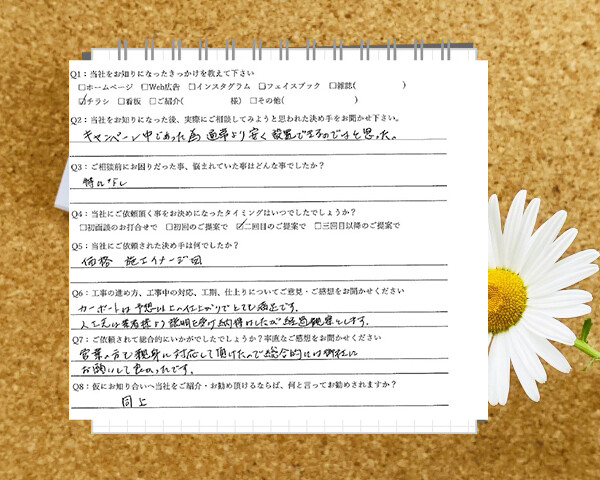 Q1：当社をお知りになったきっかけを教えて下さい
□ホームページ □Web広告 □インスタグラム □フェイスブック □雑誌( )
☑チラシ □看板 □ご紹介( 様) □その他( )
Q2：当社をお知りになった後、実際にご相談してみようと思われた決め手をお聞かせ下さい。
キャンペーン中であった為 通常より安く設置できるのでは?と思った。
Q3：ご相談前にお困りだった事、悩まれていた事はどんな事でしたか？
特になし
Q4：当社にご依頼頂く事をお決めになったタイミングはいつでしたでしょうか？
□初面談のお打合せで □初回のご提案で ☑二回目のご提案で □三回目以降のご提案で
Q5：当社にご依頼された決め手は何でしたか？
価格 施工イメージ図
Q6：工事の進め方、工事中の対応、工期、仕上りについてご意見・ご感想をお聞かせください
カーポートは予想以上の仕上がりでとても満足です。
人工芝は業者様より説明を受け納得はしたが経過観察とします。
Q7：ご依頼されて総合的にいかがでしたでしょうか？率直なご感想をお聞かせください
営業の方も親身に対応して頂けたので総合的には御社に
お願いして良かったです。
Q8：仮にお知り合いへ当社をご紹介・お勧め頂けるならば、何と言ってお勧めされますか？
同上